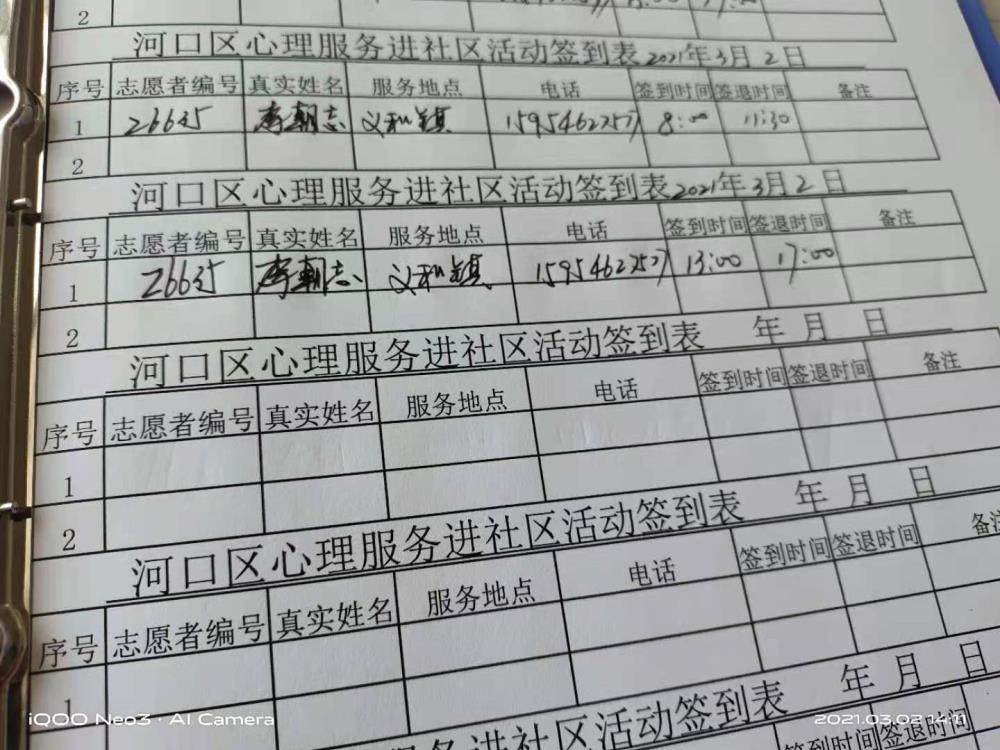 2
河口区心理服务进社区活动签到表2021年3月2日
序号 志愿者编号 真实姓名 服务地点 电话 签到时间 签退时间 备注
1 义和镇 8:00 11:30
2
河口区心理服务进社区活动签到表2021年3月2日
序号 志愿者编号 真实姓名 服务地点 电话 签到时间 签退时间 备注
1 义和镇 13:00 17:00
2
河口区心理服务进社区活动签到表 年 月 日
序号 志愿者编号 真实姓名 服务地点 电话 签到时间 签退时间 备注
1
2
河口区心理服务进社区活动签到表 年 月 日
序号 志愿者编号 真实姓名 服务地点 电话 签到时间 签退时间 备注
1
服务进社区活动签到表 年 月 日
签到时间 签退时间
iQOO Neo3 · AI Camera
2021.03.02 14:11